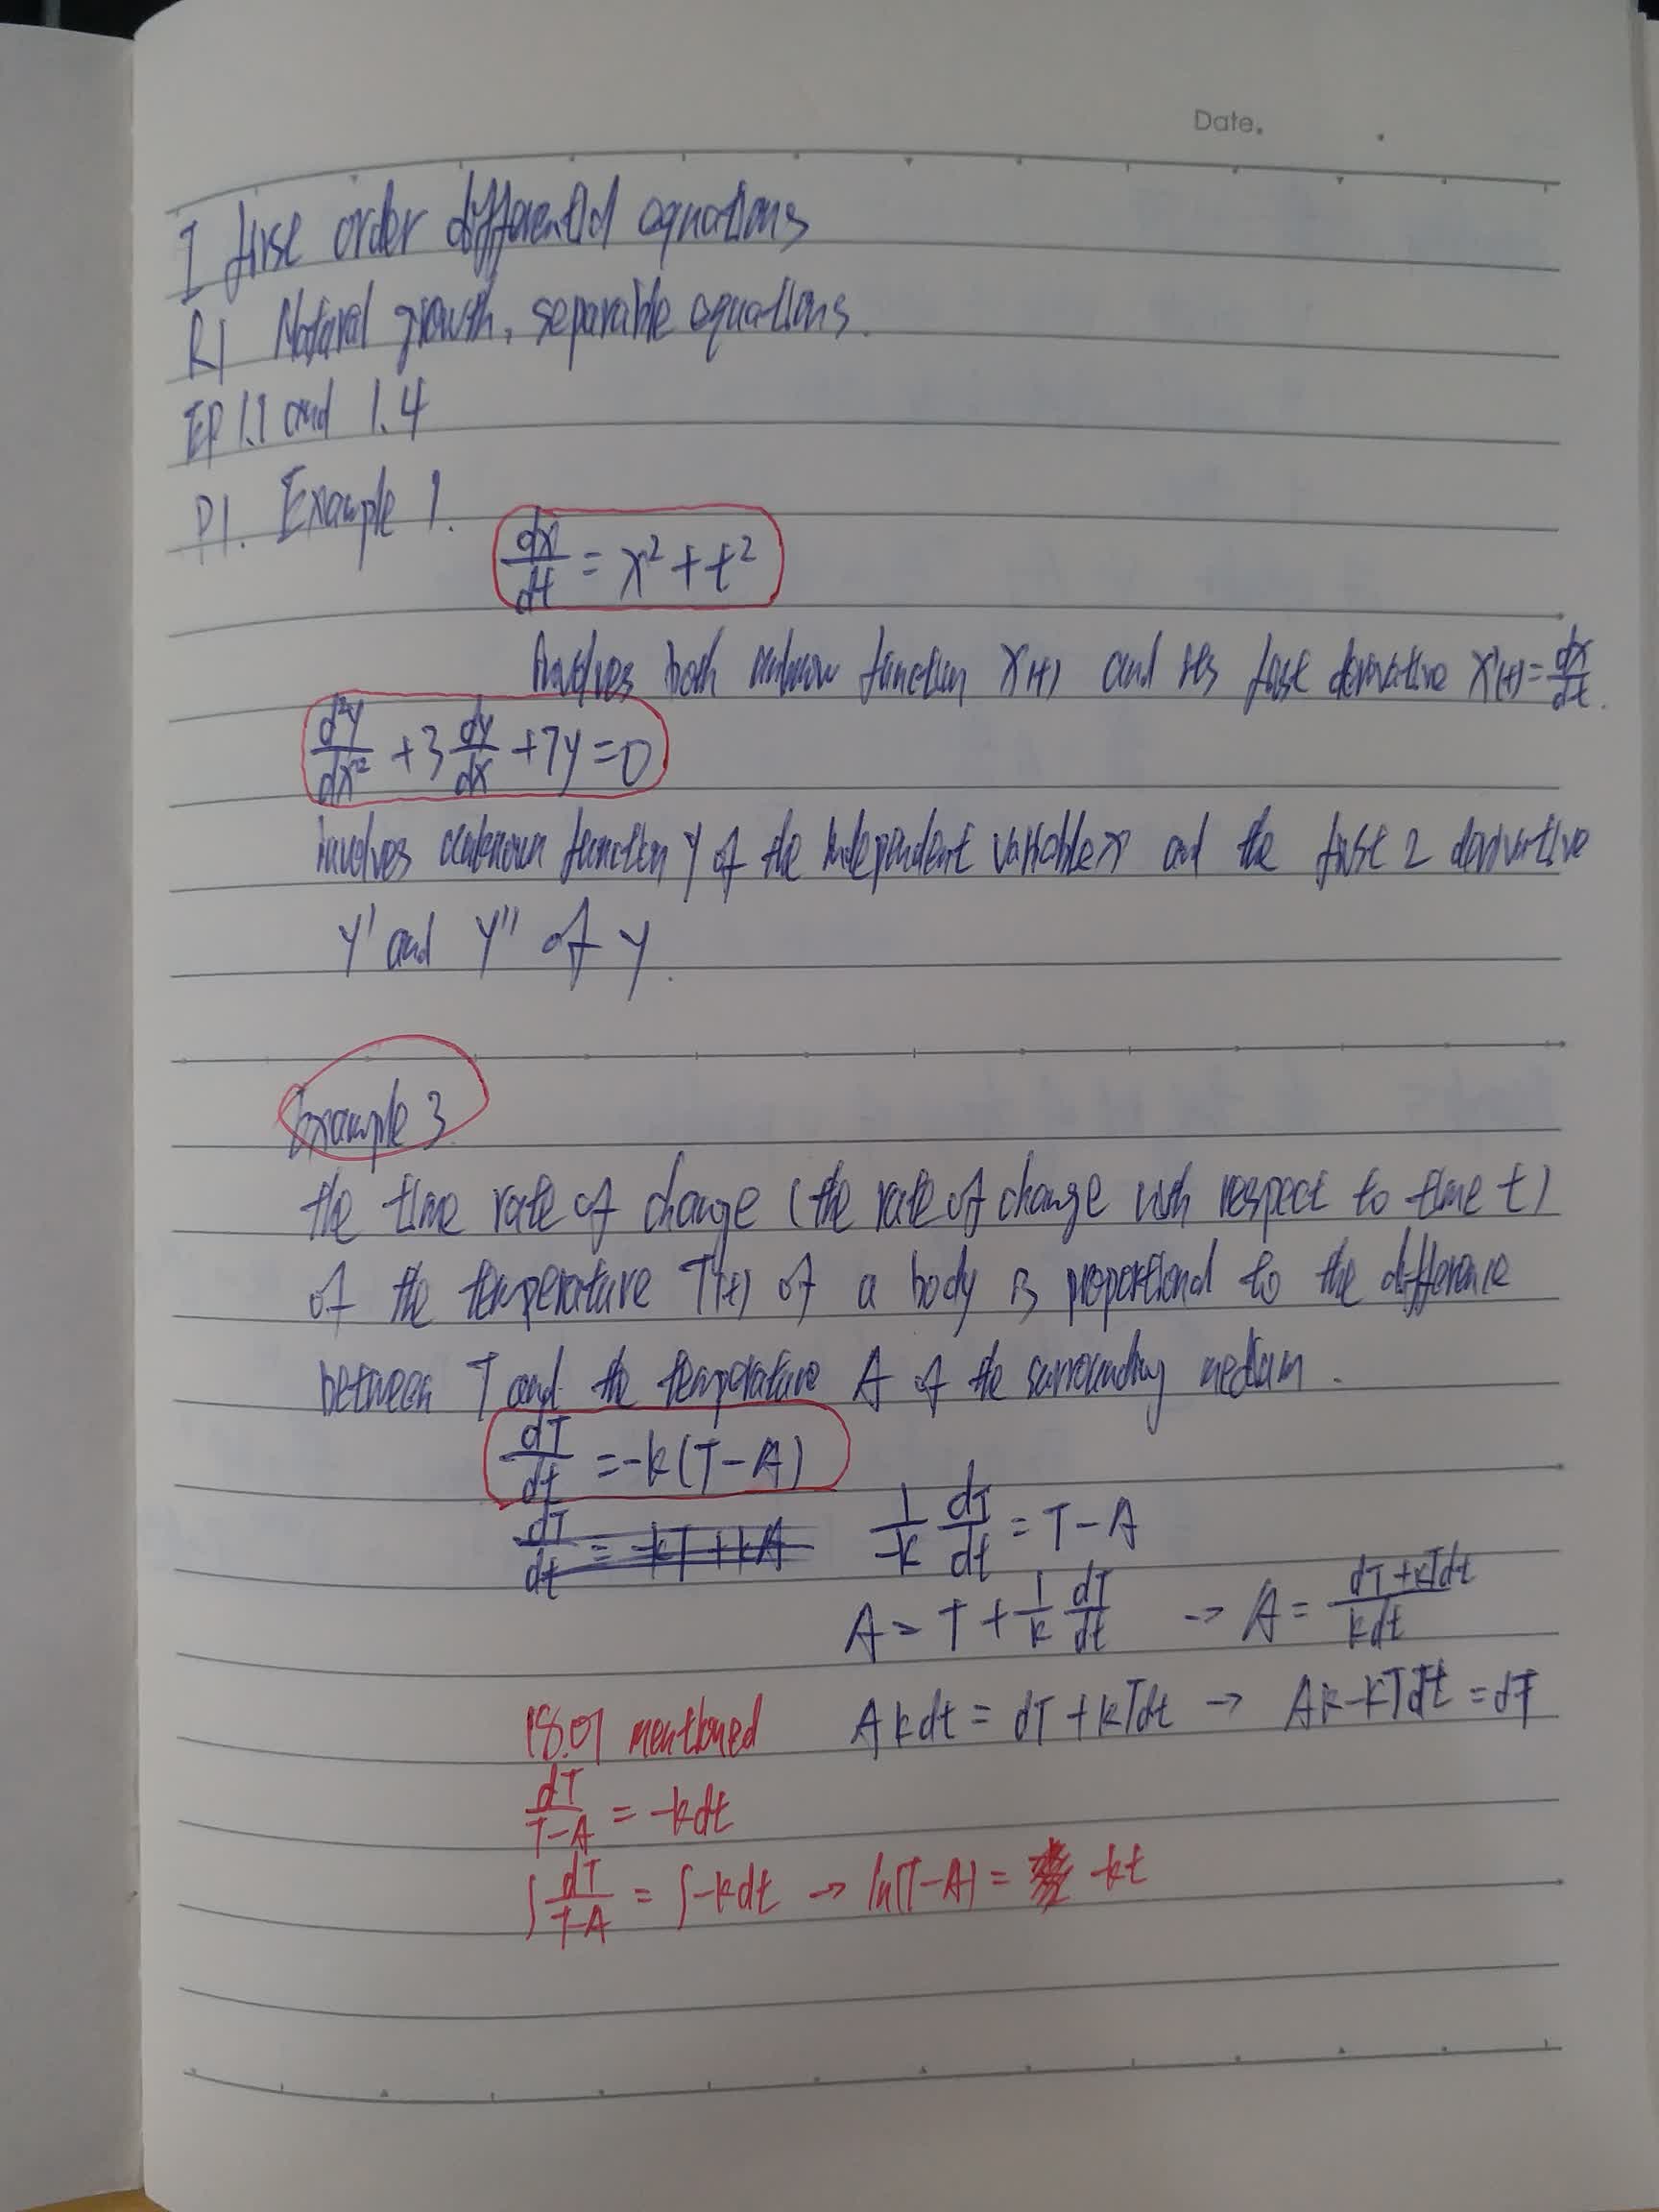 Date.
I first order differential equations
R1 Natural growth, separable equations.
EP 1.1 and 1.4
P1. Example 1.
dx/dt = x² + t²
Involves both unknow function x(t) and its first derivative x'(t) = dx/dt.
d²y/dx² + 3 dy/dx + 7y = 0
involves unknown function y of the independent variable x and the first 2 derivative
y' and y'' of y.
Example 3
the time rate of change (the rate of change with respect to time t)
of the temperature T(t) of a body is proportional to the difference
between T and the temperature A of the surrounding medium.
dT/dt = -k(T-A)
dT/dt = -kT + kA
1/-k dT/dt = T - A
A = T + 1/k dT/dt → A = dT + kTdt / kdt
Akdt = dT + kTdt → Ak - kTdt = dT
18.01 mentioned
dT/T-A = -kdt
∫ dT/T-A = ∫ -kdt → ln(T-A) = -kt